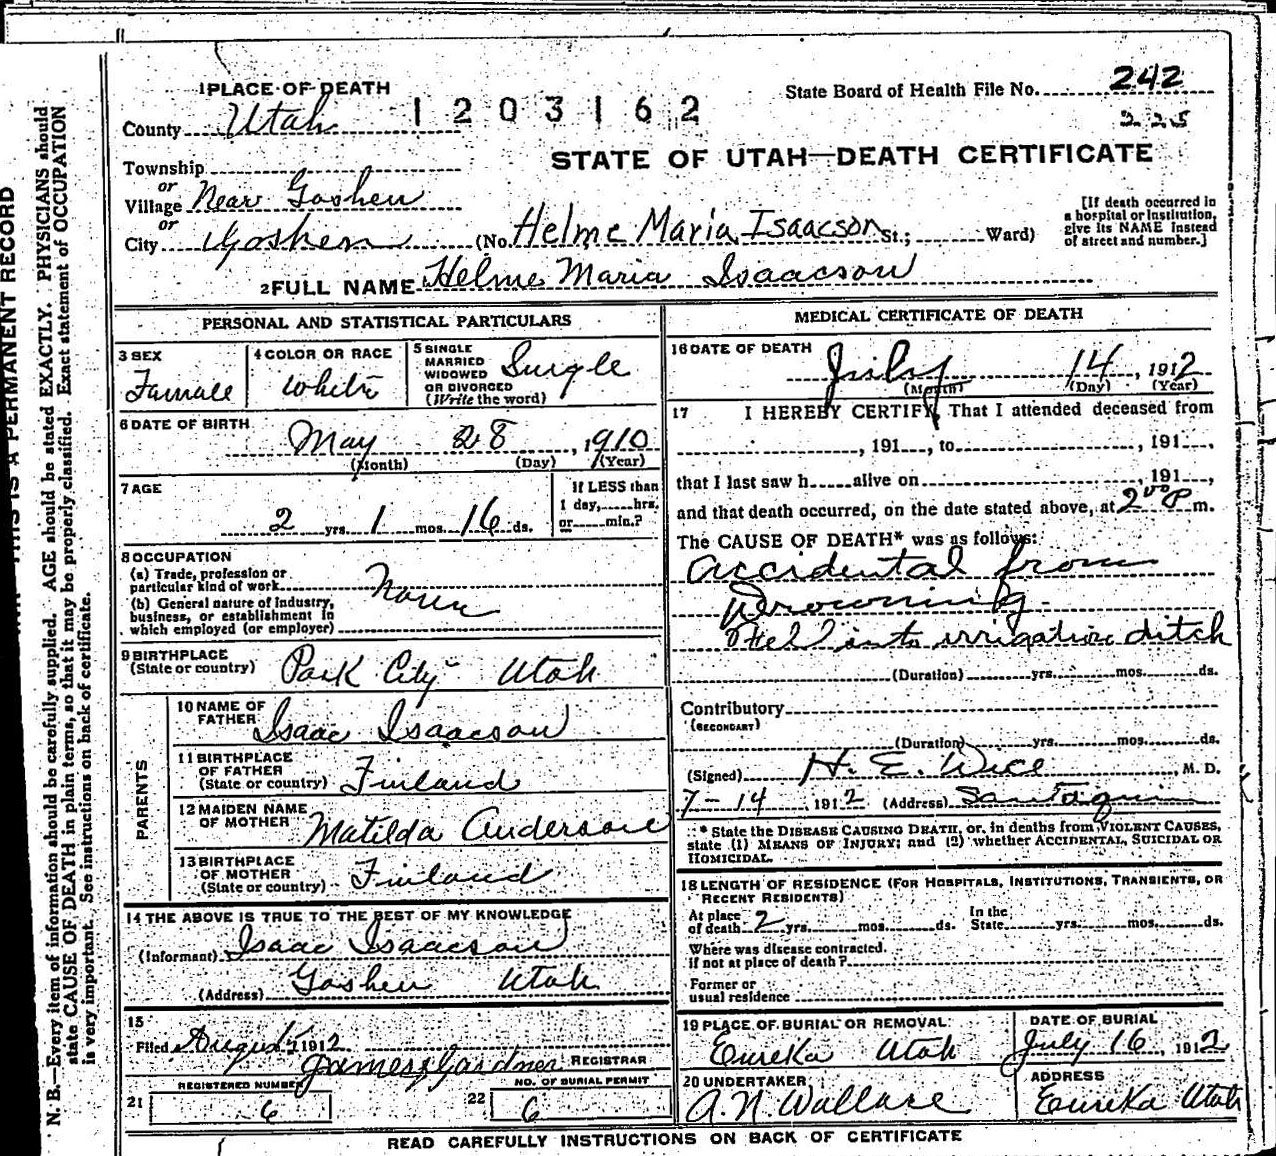 1 PLACE OF DEATH
County Utah
1203162
State Board of Health File No. 242
225
STATE OF UTAH—DEATH CERTIFICATE
Township
or
Village Near Goshen
or
City Goshen (No. Helme Maria Isaacson St.; Ward)
[If death occurred in
a hospital or institution,
give its NAME instead
of street and number.]
2 FULL NAME Helme Maria Isaacson
PERSONAL AND STATISTICAL PARTICULARS
3 SEX
Famale
4 COLOR OR RACE
White
5 SINGLE
MARRIED
WIDOWED
OR DIVORCED
(Write the word)
Single
6 DATE OF BIRTH
May 28, 1910
(Month) (Day) (Year)
7 AGE
2 yrs. 1 mos. 16 ds.
If LESS than
1 day, hrs.
or min.?
8 OCCUPATION
(a) Trade, profession or
particular kind of work
(b) General nature of industry,
business, or establishment in
which employed (or employer)
9 BIRTHPLACE
(State or country)
Park City Utah
PARENTS
10 NAME OF
FATHER
Isaac Isaacson
11 BIRTHPLACE
OF FATHER
(State or country)
Finland
12 MAIDEN NAME
OF MOTHER
Matilda Anderson
13 BIRTHPLACE
OF MOTHER
(State or country)
Finland
14 THE ABOVE IS TRUE TO THE BEST OF MY KNOWLEDGE
(Informant) Isaac Isaacson
(Address) Goshen Utah
15
Filed August 1, 1912
James Gardner REGISTRAR
REGISTERED NUMBER
21 6
NO. OF BURIAL PERMIT
22 6
MEDICAL CERTIFICATE OF DEATH
16 DATE OF DEATH
July 14, 1912
(Month) (Day) (Year)
17 I HEREBY CERTIFY, That I attended deceased from
, 191 , to , 191 ,
that I last saw h alive on , 191 ,
and that death occurred, on the date stated above, at 2 00 P m.
The CAUSE OF DEATH* was as follows:
Accidental from
Drowning
Fell into irrigation ditch
(Duration) yrs. mos. ds.
Contributory
(SECONDARY)
(Duration) yrs. mos. ds.
(Signed) H. E. Wice, M. D.
7-14, 1912 (Address) Santaquin
* State the DISEASE CAUSING DEATH, or, in deaths from VIOLENT CAUSES,
state (1) MEANS OF INJURY; and (2) whether ACCIDENTAL, SUICIDAL OR
HOMICIDAL.
18 LENGTH OF RESIDENCE (FOR HOSPITALS, INSTITUTIONS, TRANSIENTS, OR
RECENT RESIDENTS)
At place
of death 2 yrs. mos. ds.
In the
State yrs. mos. ds.
Where was disease contracted,
if not at place of death?
Former or
usual residence
19 PLACE OF BURIAL OR REMOVAL
Eureka Utah
DATE OF BURIAL
July 16, 1912
20 UNDERTAKER
A. N. Wallace
ADDRESS
Eureka Utah
READ CAREFULLY INSTRUCTIONS ON BACK OF CERTIFICATE
THIS IS A PERMANENT RECORD
N. B.—Every item of information should be carefully supplied. AGE should be stated EXACTLY. PHYSICIANS should
state CAUSE OF DEATH in plain terms, so that it may be properly classified. Exact statement of OCCUPATION
is very important. See instructions on back of certificate.